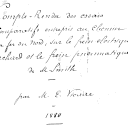 Compte-Rendu des essais
comparatifs entrepris au Chemin
de fer du Nord, sur le frein électrique
Achard et le frein pneumatique
de M. Smith
par M. E.
1880